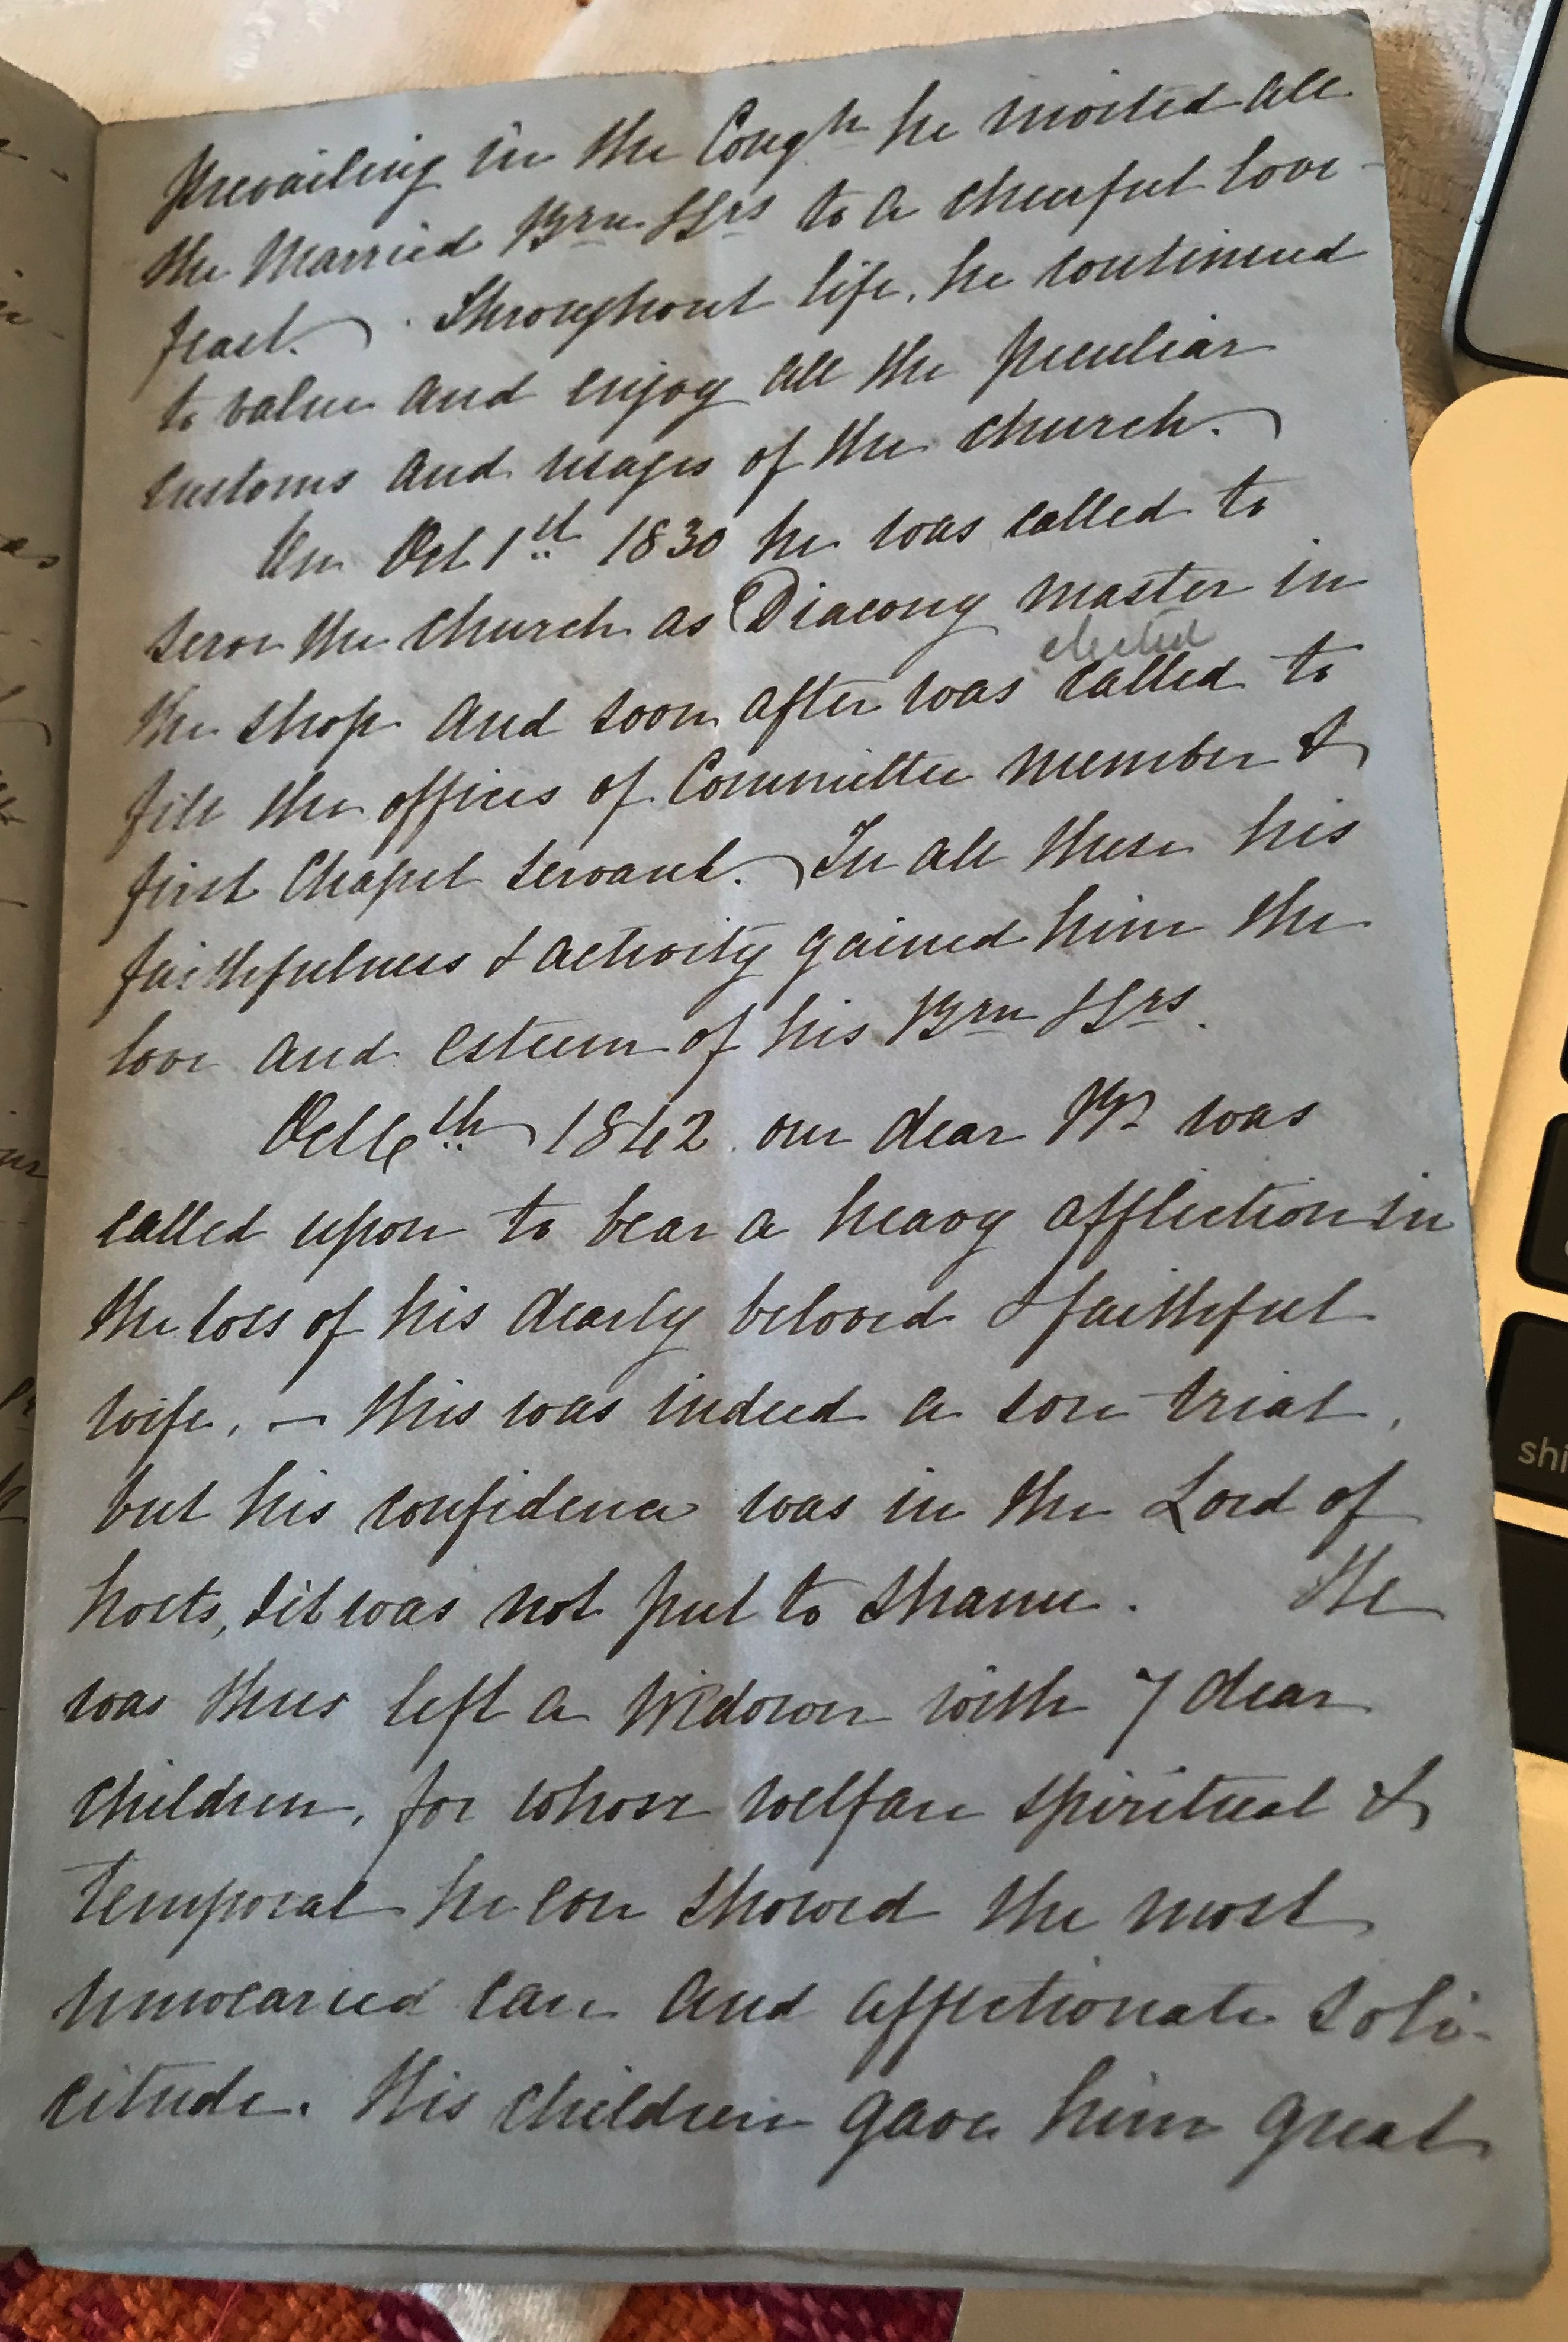 prevailing in the Congn he invited all
the Married Brn & Srs to a cheerful love-
feast. Throughout life, he continued
to value and enjoy all the peculiar
customs and usages of the church.
On Oct 1st 1830 he was called to
serve the church as Diacony master in
elected
the shop and soon after was called to
fill the offices of Committee member &
first Chapel servant. In all these his
faithfulness & activity gained him the
love and esteem of his Brn & Srs.
Oct 6th 1842 our dear Br was
called upon to bear a heavy affliction in
the loss of his dearly beloved & faithful
wife, — this was indeed a sore trial,
but his confidence was in the Lord of
hosts, & it was not put to shame. He
was thus left a Widower with 7 dear
children, for whose welfare spiritual &
temporal he ever showed the most
unwearied care and affectionate soli-
citude. His children gave him great
shi